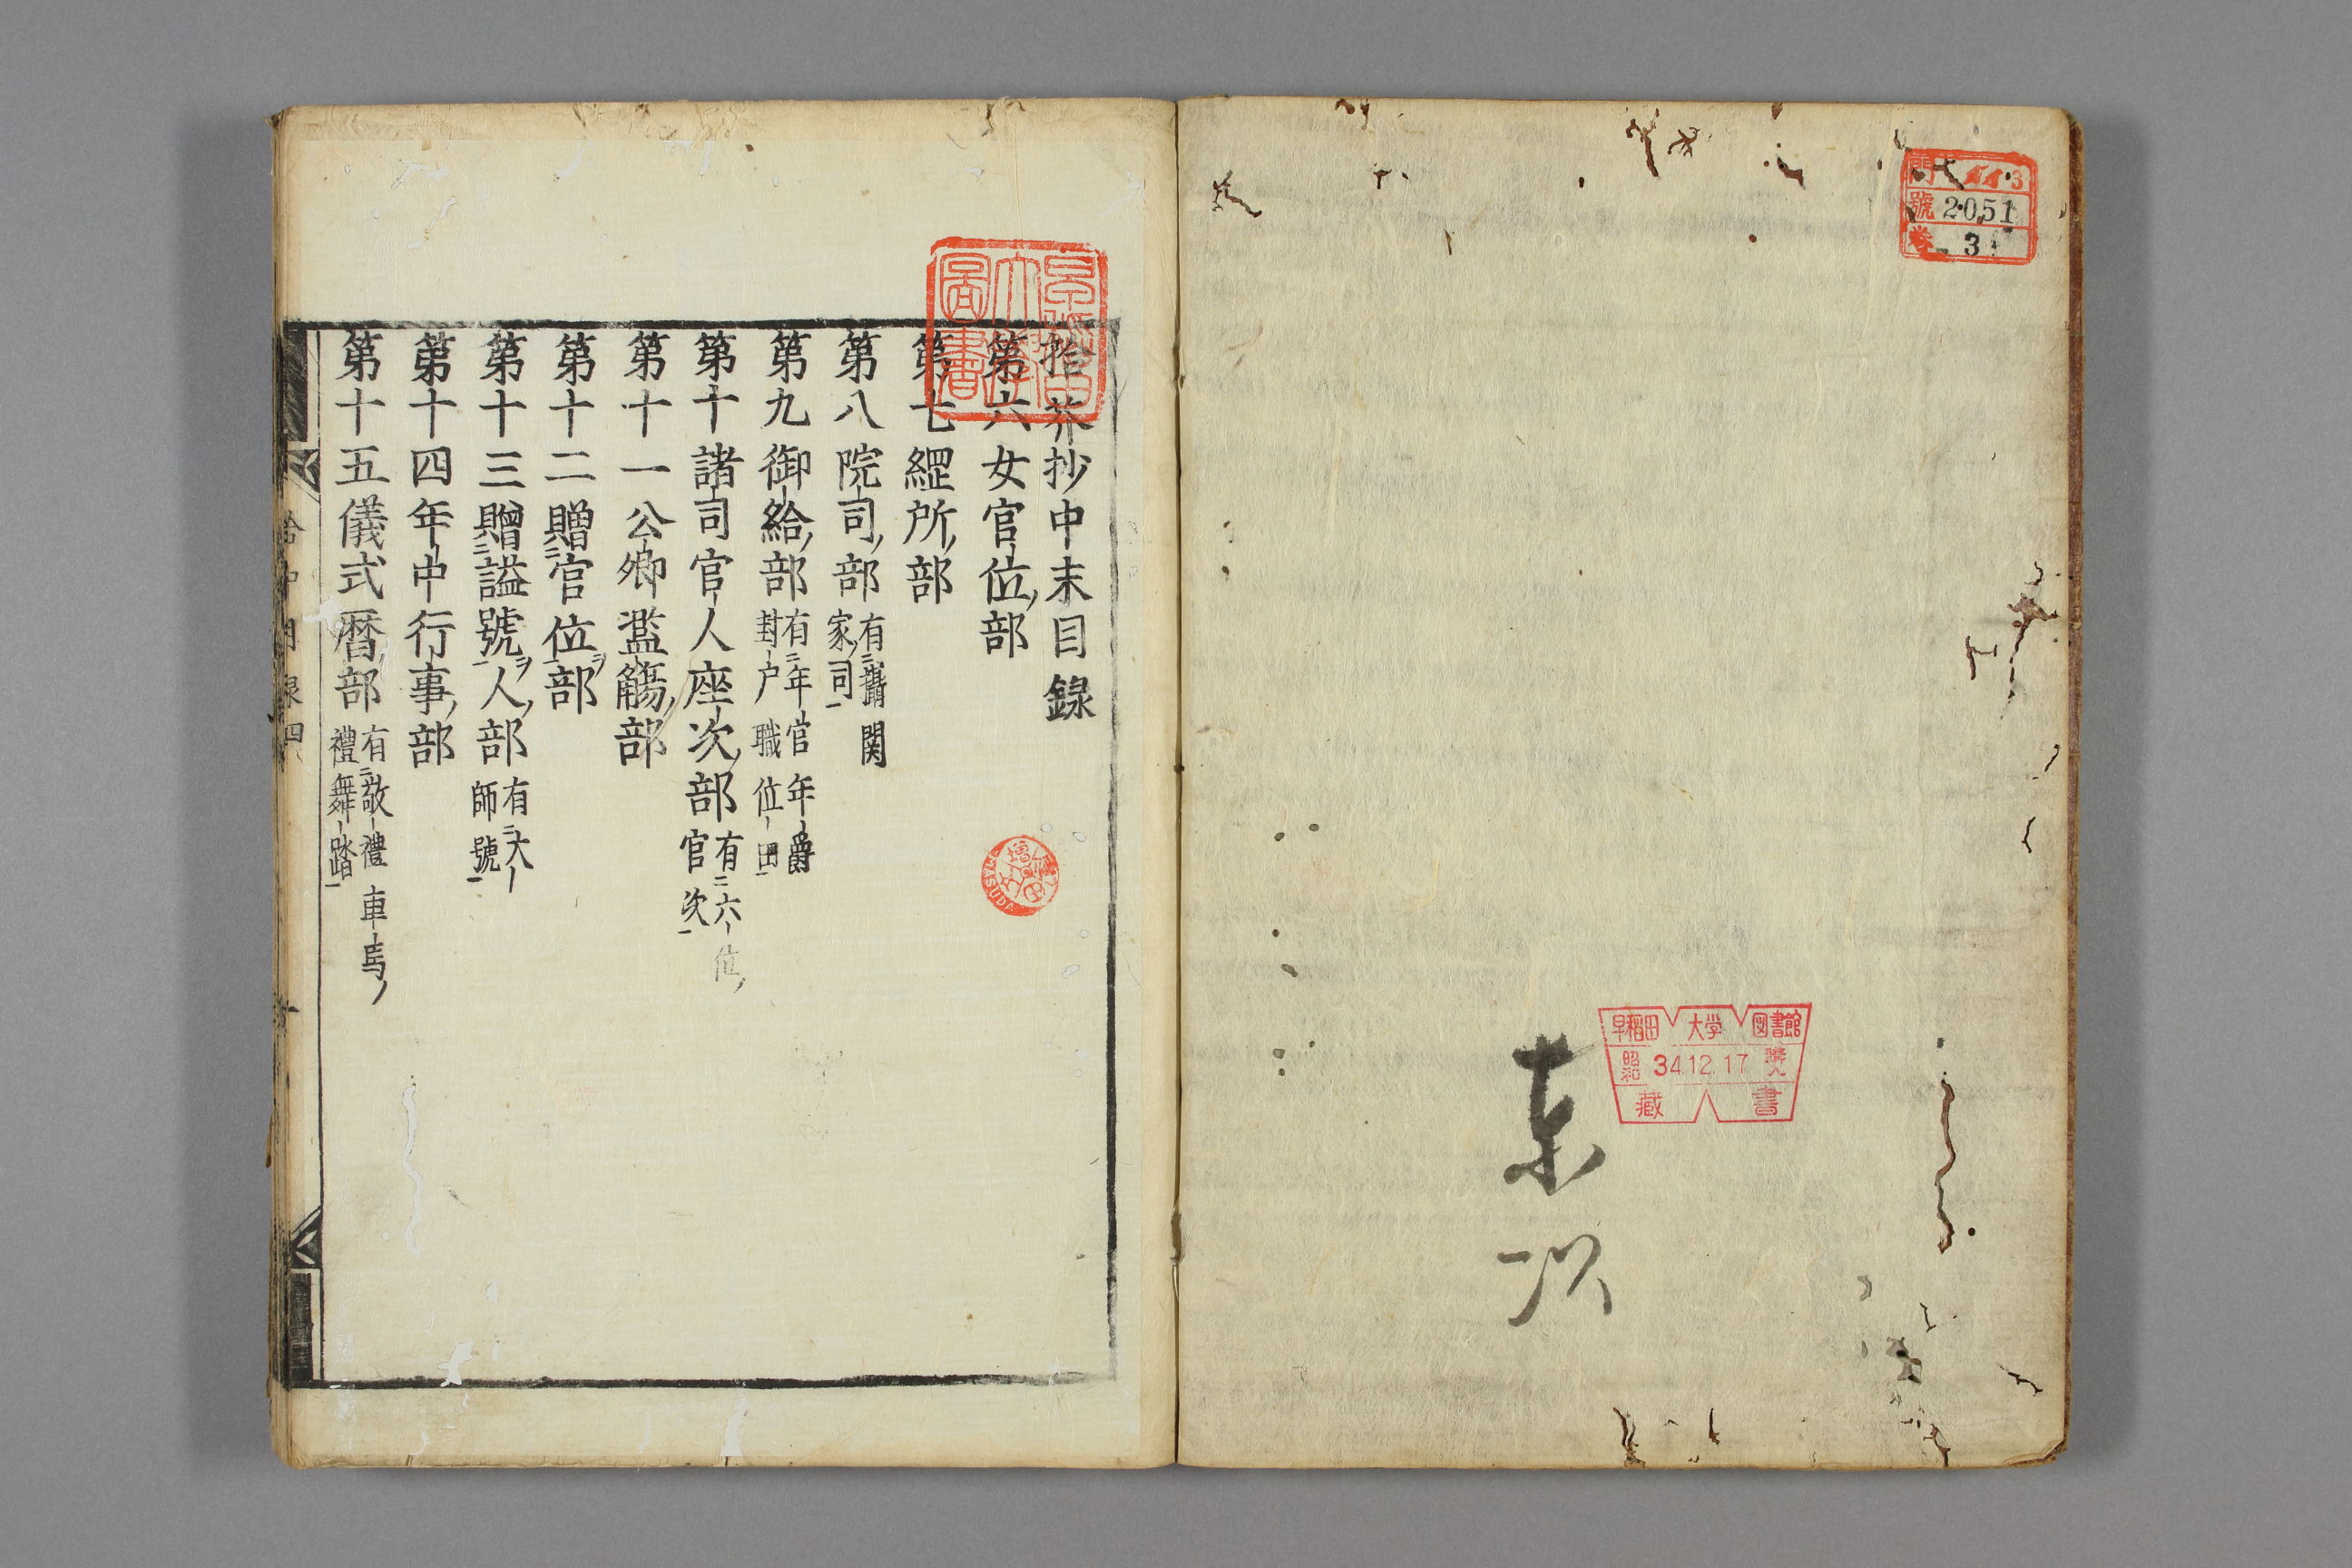 門
號 2051
卷 3
早稲田大学図書館
昭和 34.12.17 購入
藏書
拾芥抄中末目録
第六女官位部
第七綛所部
第八院司部 有聟関 家司
第九御給部 有年官年爵 封戸職位田
第十諸司官人座次部 有六位 官次
第十一公卿濫觴部
第十二贈官位ヲ部
第十三贈謚號ヲ人部 有大 師號
第十四年中行事部
第十五儀式暦部 有敬禮車馬 禮舞踏
早稲田大學圖書
増田
MASUDA